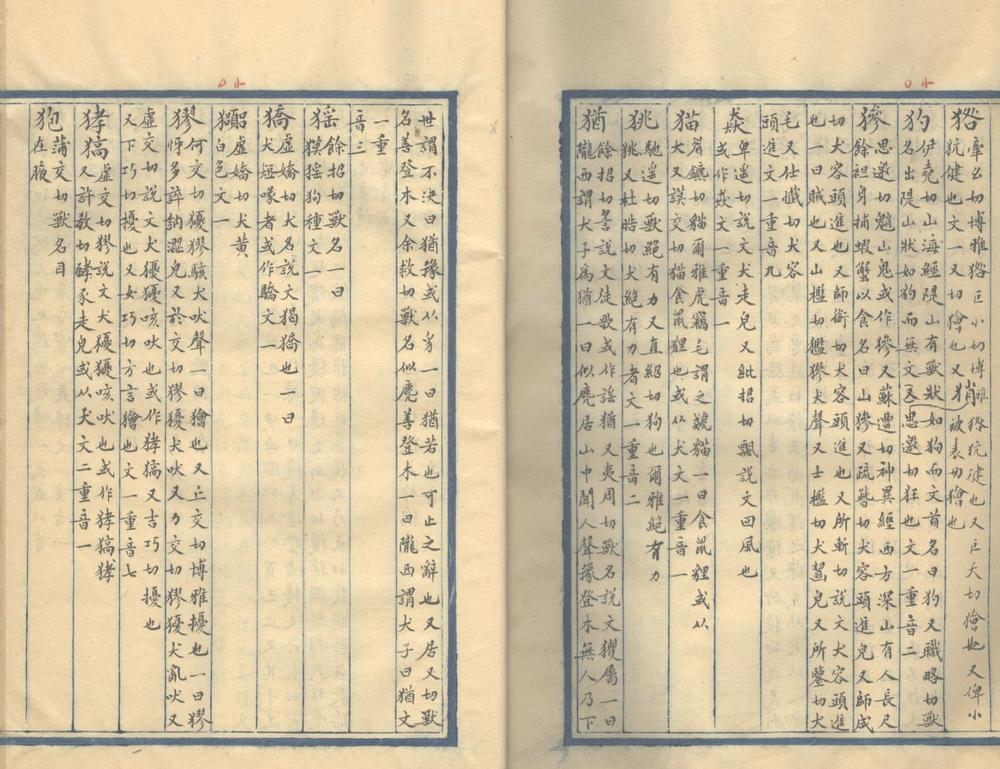 巨小切博雅犺健也又巨夭切獪也又俾小
牽幺切博雅
犺健也文一又切獪也又被表切獪也
犳伊堯切山海經隄山有獸狀如狗而文首名曰犳又職略切獸
名出隄山狀如豹而無文又思邀切狂也文一重音二
獿思邀切魈山鬼或作獿又蘇遭切神異經西方深山有人長尺
餘袒身捕蝦蟹以食名曰山獿又疏簪切犬容頭進皃又師咸
切犬容頭進也又師銜切犬容頭進也又所斬切說文犬容頭進
也一曰賊也又山檻切檻獿犬聲又士檻切犬齧皃又所鑒切犬
毛又仕懺切犬容
頭進文一重音九
猋卑遥切說文犬走皃又紕招切飄說文回風也
或作焱文一重音一
猫眉鑣切貓爾雅虎竊毛謂之虦猫一曰食鼠貍或从
犬又謨交切猫食鼠貍也或从犬文一重音一
狣馳遥切獸絕有力又直紹切狗也爾雅絕有力
狣又杜晧切犬絕有力者文一重音二
猶餘招切䚻說文徒歌或作謡猶又夷周切獸名說文玃屬一曰
隴西謂犬子為猶一曰似麂居山中聞人聲豫登木無人乃下
世謂不決曰猶豫或从豸一曰猶若也可止之辭也又居又切獸
名善登木又余救切獸名似麂善登木一曰隴西謂犬子曰猶文
一重
音三
猺餘招切獸名一曰
獏猺狗種文一
獢虛嬌切犬名說文猲獢也一曰
犬短喙者或作驕文一
虛嬌切犬黄
白色文一
獿何交切獿獿駭犬吠聲一曰獪也又丘交切博雅擾也一曰獿
㤉多詐訥譅皃又於交切獿擾犬吠又力交切獿擾犬亂吠又
虛交切說文犬獿獿咳吠也或作猚㺒又吉巧切擾也
又下巧切擾也又女巧切方言獪也文一重音七
猚㺒虛交切獿說文犬獿獿咳吠也或作猚㺒猚
又許敎切䃔豕走皃或以犬文二重音一
狍蒲交切獸名目
在腋